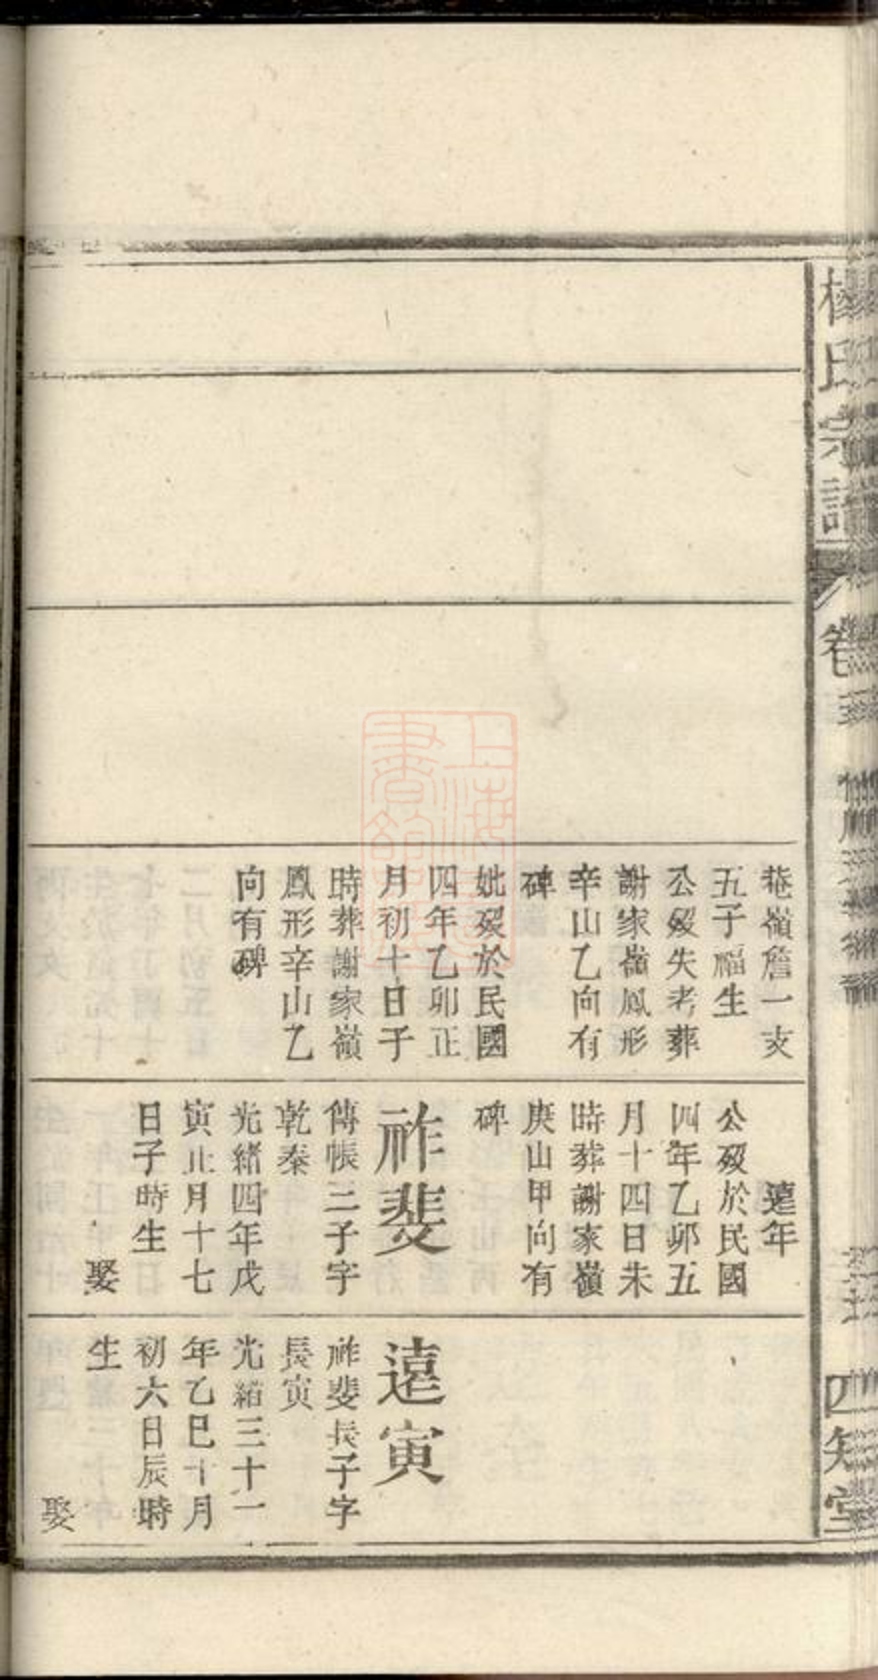 楊氏宗譜
卷
四知堂
菴嶺詹一支
五子福生
公歿失考葬
謝家嶺鳳形
辛山乙向有
碑
妣歿於民國
四年乙卯正
月初十日子
時葬謝家嶺
鳳形辛山乙
向有碑
遠年
公歿於民國
四年乙卯五
月十四日未
時葬謝家嶺
庚山甲向有
碑
祚斐
傳帳二子字
乾秦
光緒四年戊
寅正月十七
日子時生
娶
遠寅
祚斐長子字
長寅
光緒三十一
年乙巳十月
初六日辰時
生
娶
上海圖書館藏